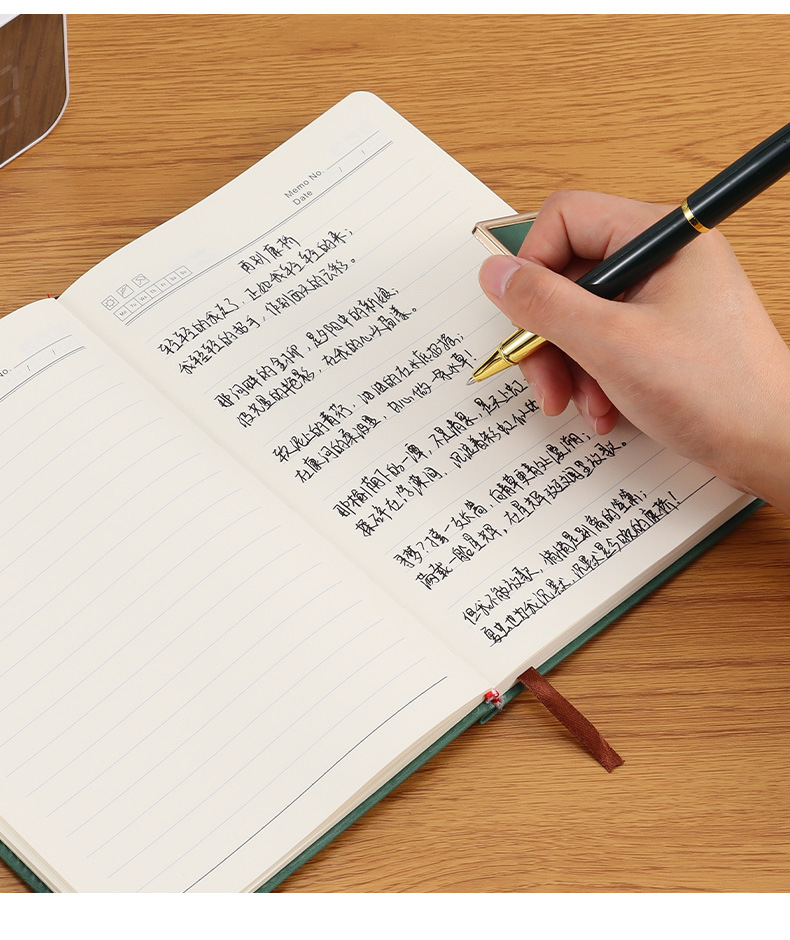 No.
/ /
Memo No.
Date / /
Mo Tu We Th Fr Sa Su
再别康桥
轻轻的我走了，正如我轻轻的来；
我轻轻的招手，作别西天的云彩。
那河畔的金柳，是夕阳中的新娘；
波光里的艳影，在我的心头荡漾。
软泥上的青荇，油油的在水底招摇；
在康河的柔波里，甘心做一条水草！
那榆荫下的一潭，不是清泉，是天上虹
揉碎在浮藻间，沉淀着彩虹似的
寻梦？撑一支长篙，向青草更青处漫溯；
满载一船星辉，在星辉斑斓里放歌。
但我不能放歌，悄悄是别离的笙箫；
夏虫也为我沉默，沉默是今晚的康桥！